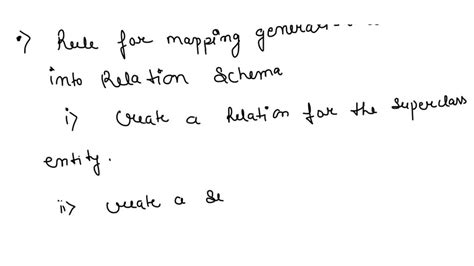 •> Rule for mapping
into Relation Schema
i> Create a Relation for the superclass
entity.
ii> Create a Se